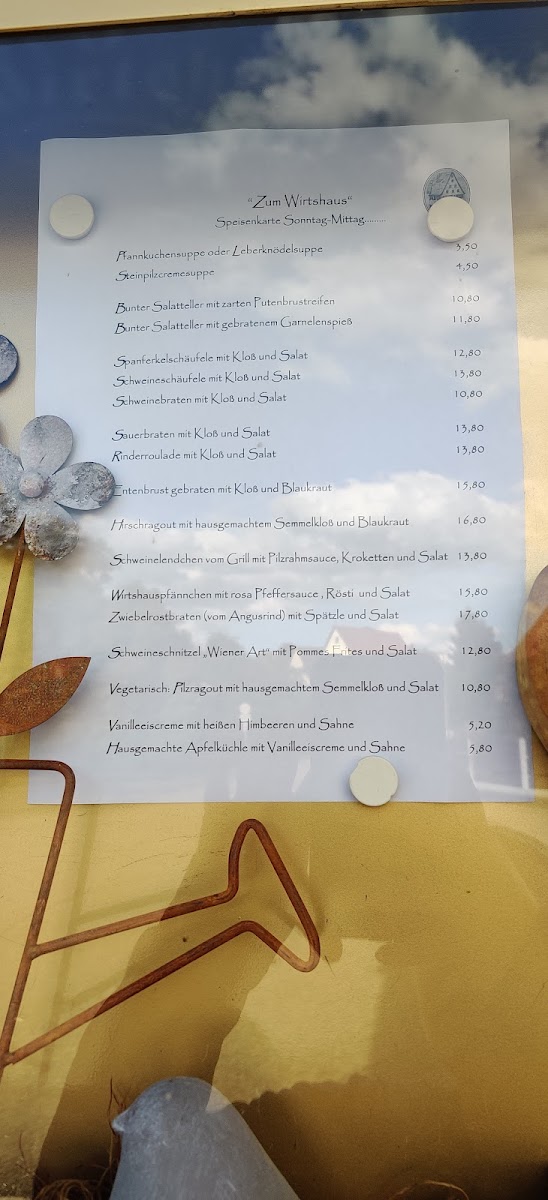 "Zum Wirtshaus"
Speisenkarte Sonntag-Mittag.........
Pfannkuchensuppe oder Leberknödelsuppe 3,50
Steinpilzcremesuppe 4,50
Bunter Salatteller mit zarten Putenbrustreifen 10,80
Bunter Salatteller mit gebratenem Garnelenspieß 11,80
Spanferkelschäufele mit Kloß und Salat 12,80
Schweineschäufele mit Kloß und Salat 13,80
Schweinebraten mit Kloß und Salat 10,80
Sauerbraten mit Kloß und Salat 13,80
Rinderroulade mit Kloß und Salat 13,80
Entenbrust gebraten mit Kloß und Blaukraut 15,80
Hirschragout mit hausgemachtem Semmelkloß und Blaukraut 16,80
Schweinelendchen vom Grill mit Pilzrahmsauce, Kroketten und Salat 13,80
Wirtshauspfännchen mit rosa Pfeffersauce , Rösti und Salat 15,80
Zwiebelrostbraten (vom Angusrind) mit Spätzle und Salat 17,80
Schweineschnitzel „Wiener Art" mit Pommes Frites und Salat 12,80
Vegetarisch: Pilzragout mit hausgemachtem Semmelkloß und Salat 10,80
Vanilleeiscreme mit heißen Himbeeren und Sahne 5,20
Hausgemachte Apfelküchle mit Vanilleeiscreme und Sahne 5,80